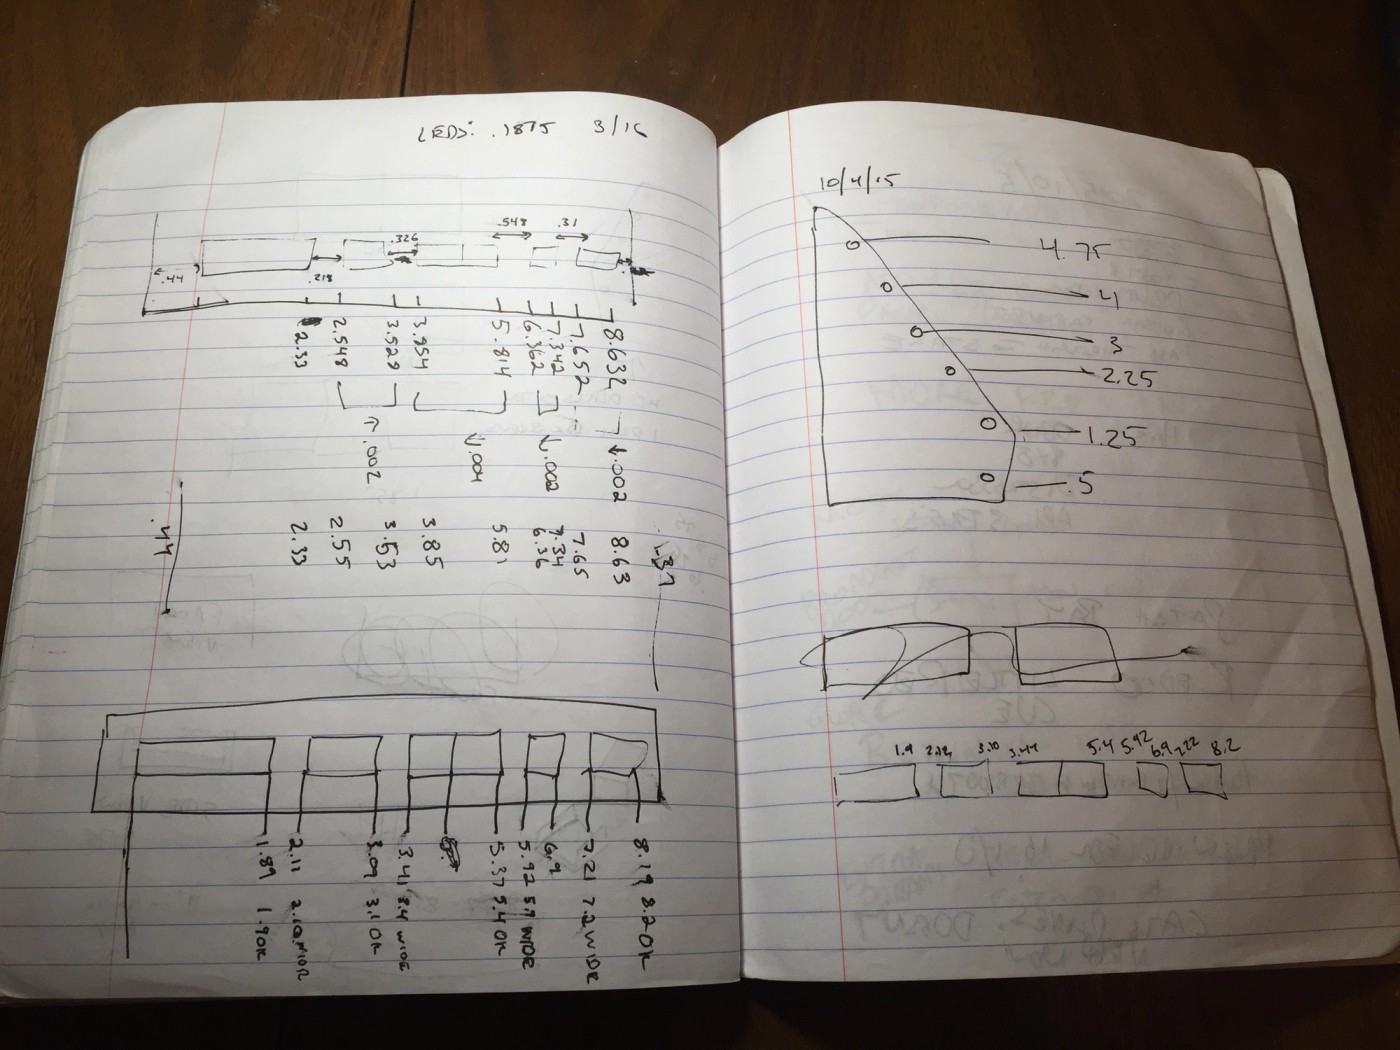 LEDs: .1875 3/16
.548 .31
.326
.44 .218
2.33
2.548
3.529
3.854
5.814
6.362
7.342
7.652
8.632
↑.002
↓.004
↓.002
↓.002
.44
2.33
2.55
3.53
3.85
5.81
6.36
7.34
7.65
8.63
1.89 1.9 OK
2.11
3.09 3.1 OK
3.41 3.4 WIDE
5.37 5.4 OK
5.92 5.9 WIDE
6.9
7.21 7.2 WIDE
8.19 8.2 OK
10/4/15
4.75
4
3
2.25
1.25
.5
1.9 3.10 3.44 5.4 5.92 6.9 7.22 8.2